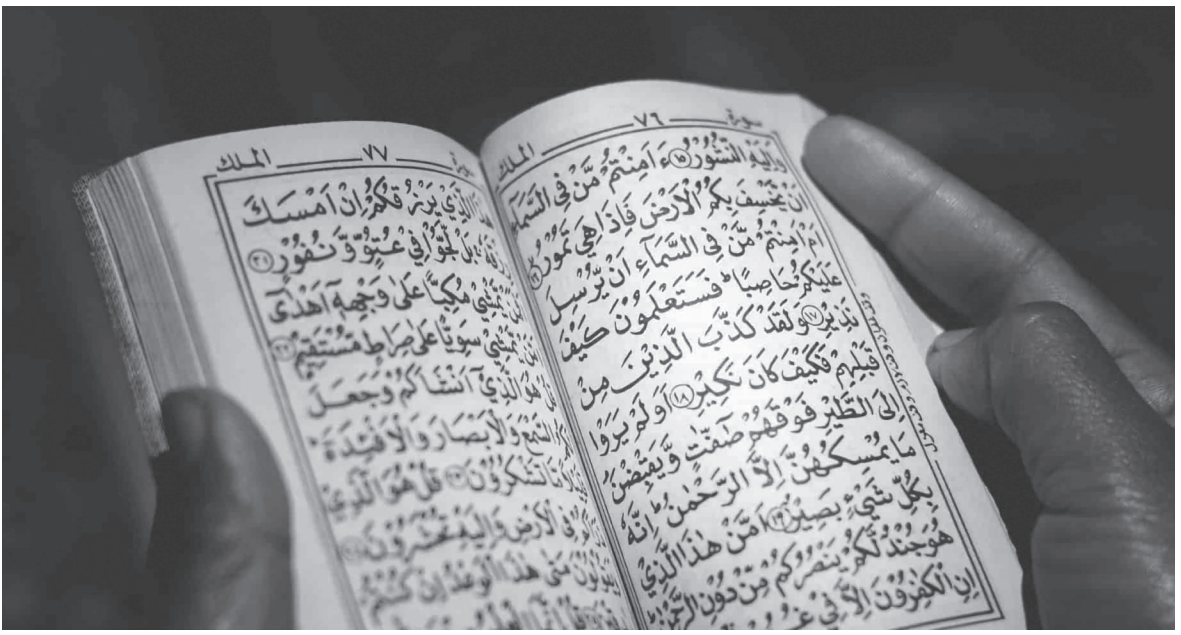 سورة ٧٦ الملك
وَاِلَيْهِ النُّشُوْرُ ١٥ ءَاَمِنْتُمْ مَّنْ فِي السَّمَآءِ
اَنْ يَّخْسِفَ بِكُمُ الْاَرْضَ فَاِذَا هِيَ تَمُوْرُ ١٦
اَمْ اَمِنْتُمْ مَّنْ فِي السَّمَآءِ اَنْ يُّرْسِلَ
عَلَيْكُمْ حَاصِبًا ط فَسَتَعْلَمُوْنَ كَيْفَ
نَذِيْرِ ١٧ وَلَقَدْ كَذَّبَ الَّذِيْنَ مِنْ
قَبْلِهِمْ فَكَيْفَ كَانَ نَكِيْرِ ١٨ اَوَلَمْ يَرَوْا
اِلَى الطَّيْرِ فَوْقَهُمْ صٰٓفّٰتٍ وَّيَقْبِضْنَ
مَا يُمْسِكُهُنَّ اِلَّا الرَّحْمٰنُ ط اِنَّهٗ
بِكُلِّ شَيْءٍ بَصِيْرٌ ١٩ اَمَّنْ هٰذَا الَّذِيْ
هُوَ جُنْدٌ لَّكُمْ يَنْصُرُكُمْ مِّنْ دُوْنِ الرَّحْمٰنِ ط
اِنِ الْكٰفِرُوْنَ اِلَّا فِيْ
سورة ٧٧ الملك
هٰذَا الَّذِيْ يَرْزُقُكُمْ اِنْ اَمْسَكَ
رِزْقَهٗ بَلْ لَّجُّوْا فِيْ عُتُوٍّ وَّنُفُوْرٍ ٢١
يَّمْشِيْ مُكِبًّا عَلٰى وَجْهِهٖٓ اَهْدٰٓى
يَّمْشِيْ سَوِيًّا عَلٰى صِرَاطٍ مُّسْتَقِيْمٍ ٢٢
قُلْ هُوَ الَّذِيْٓ اَنْشَاَكُمْ وَجَعَلَ
لَكُمُ السَّمْعَ وَالْاَبْصَارَ وَالْاَفْـِٕدَةَ ط
قَلِيْلًا مَّا تَشْكُرُوْنَ ٢٣ قُلْ هُوَ الَّذِيْ
فِي الْاَرْضِ وَاِلَيْهِ تُحْشَرُوْنَ ٢٤
وَيَقُوْلُوْنَ مَتٰى هٰذَا الْوَعْدُ اِنْ كُنْتُمْ